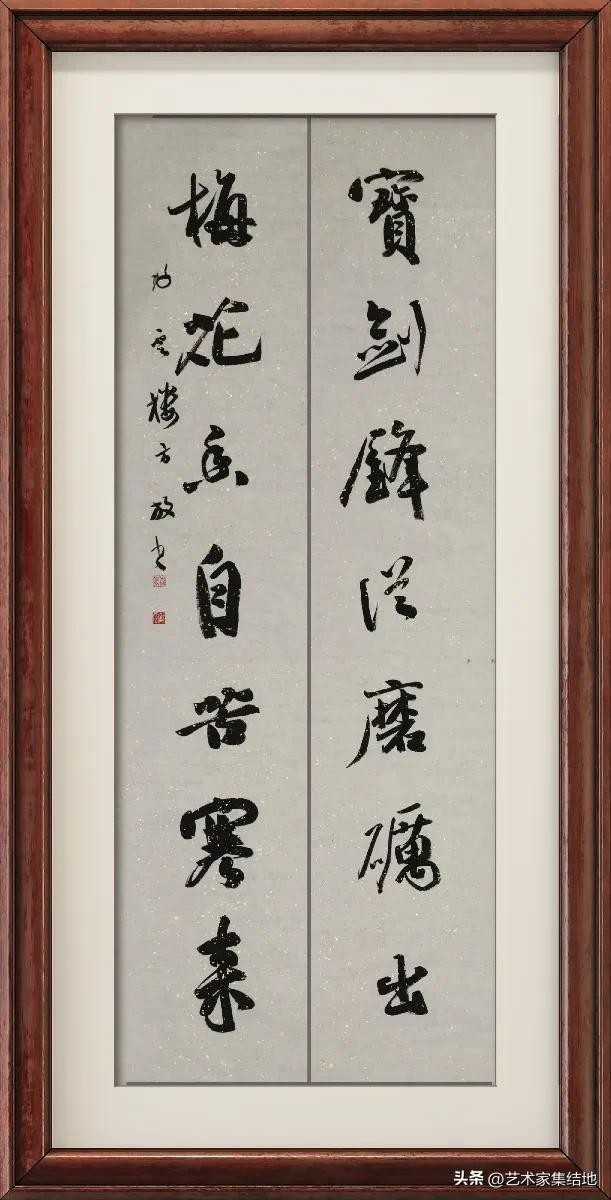 寶劍鋒從磨礪出
梅花香自苦寒來
雲樓方放書
头条 @艺术家集结地